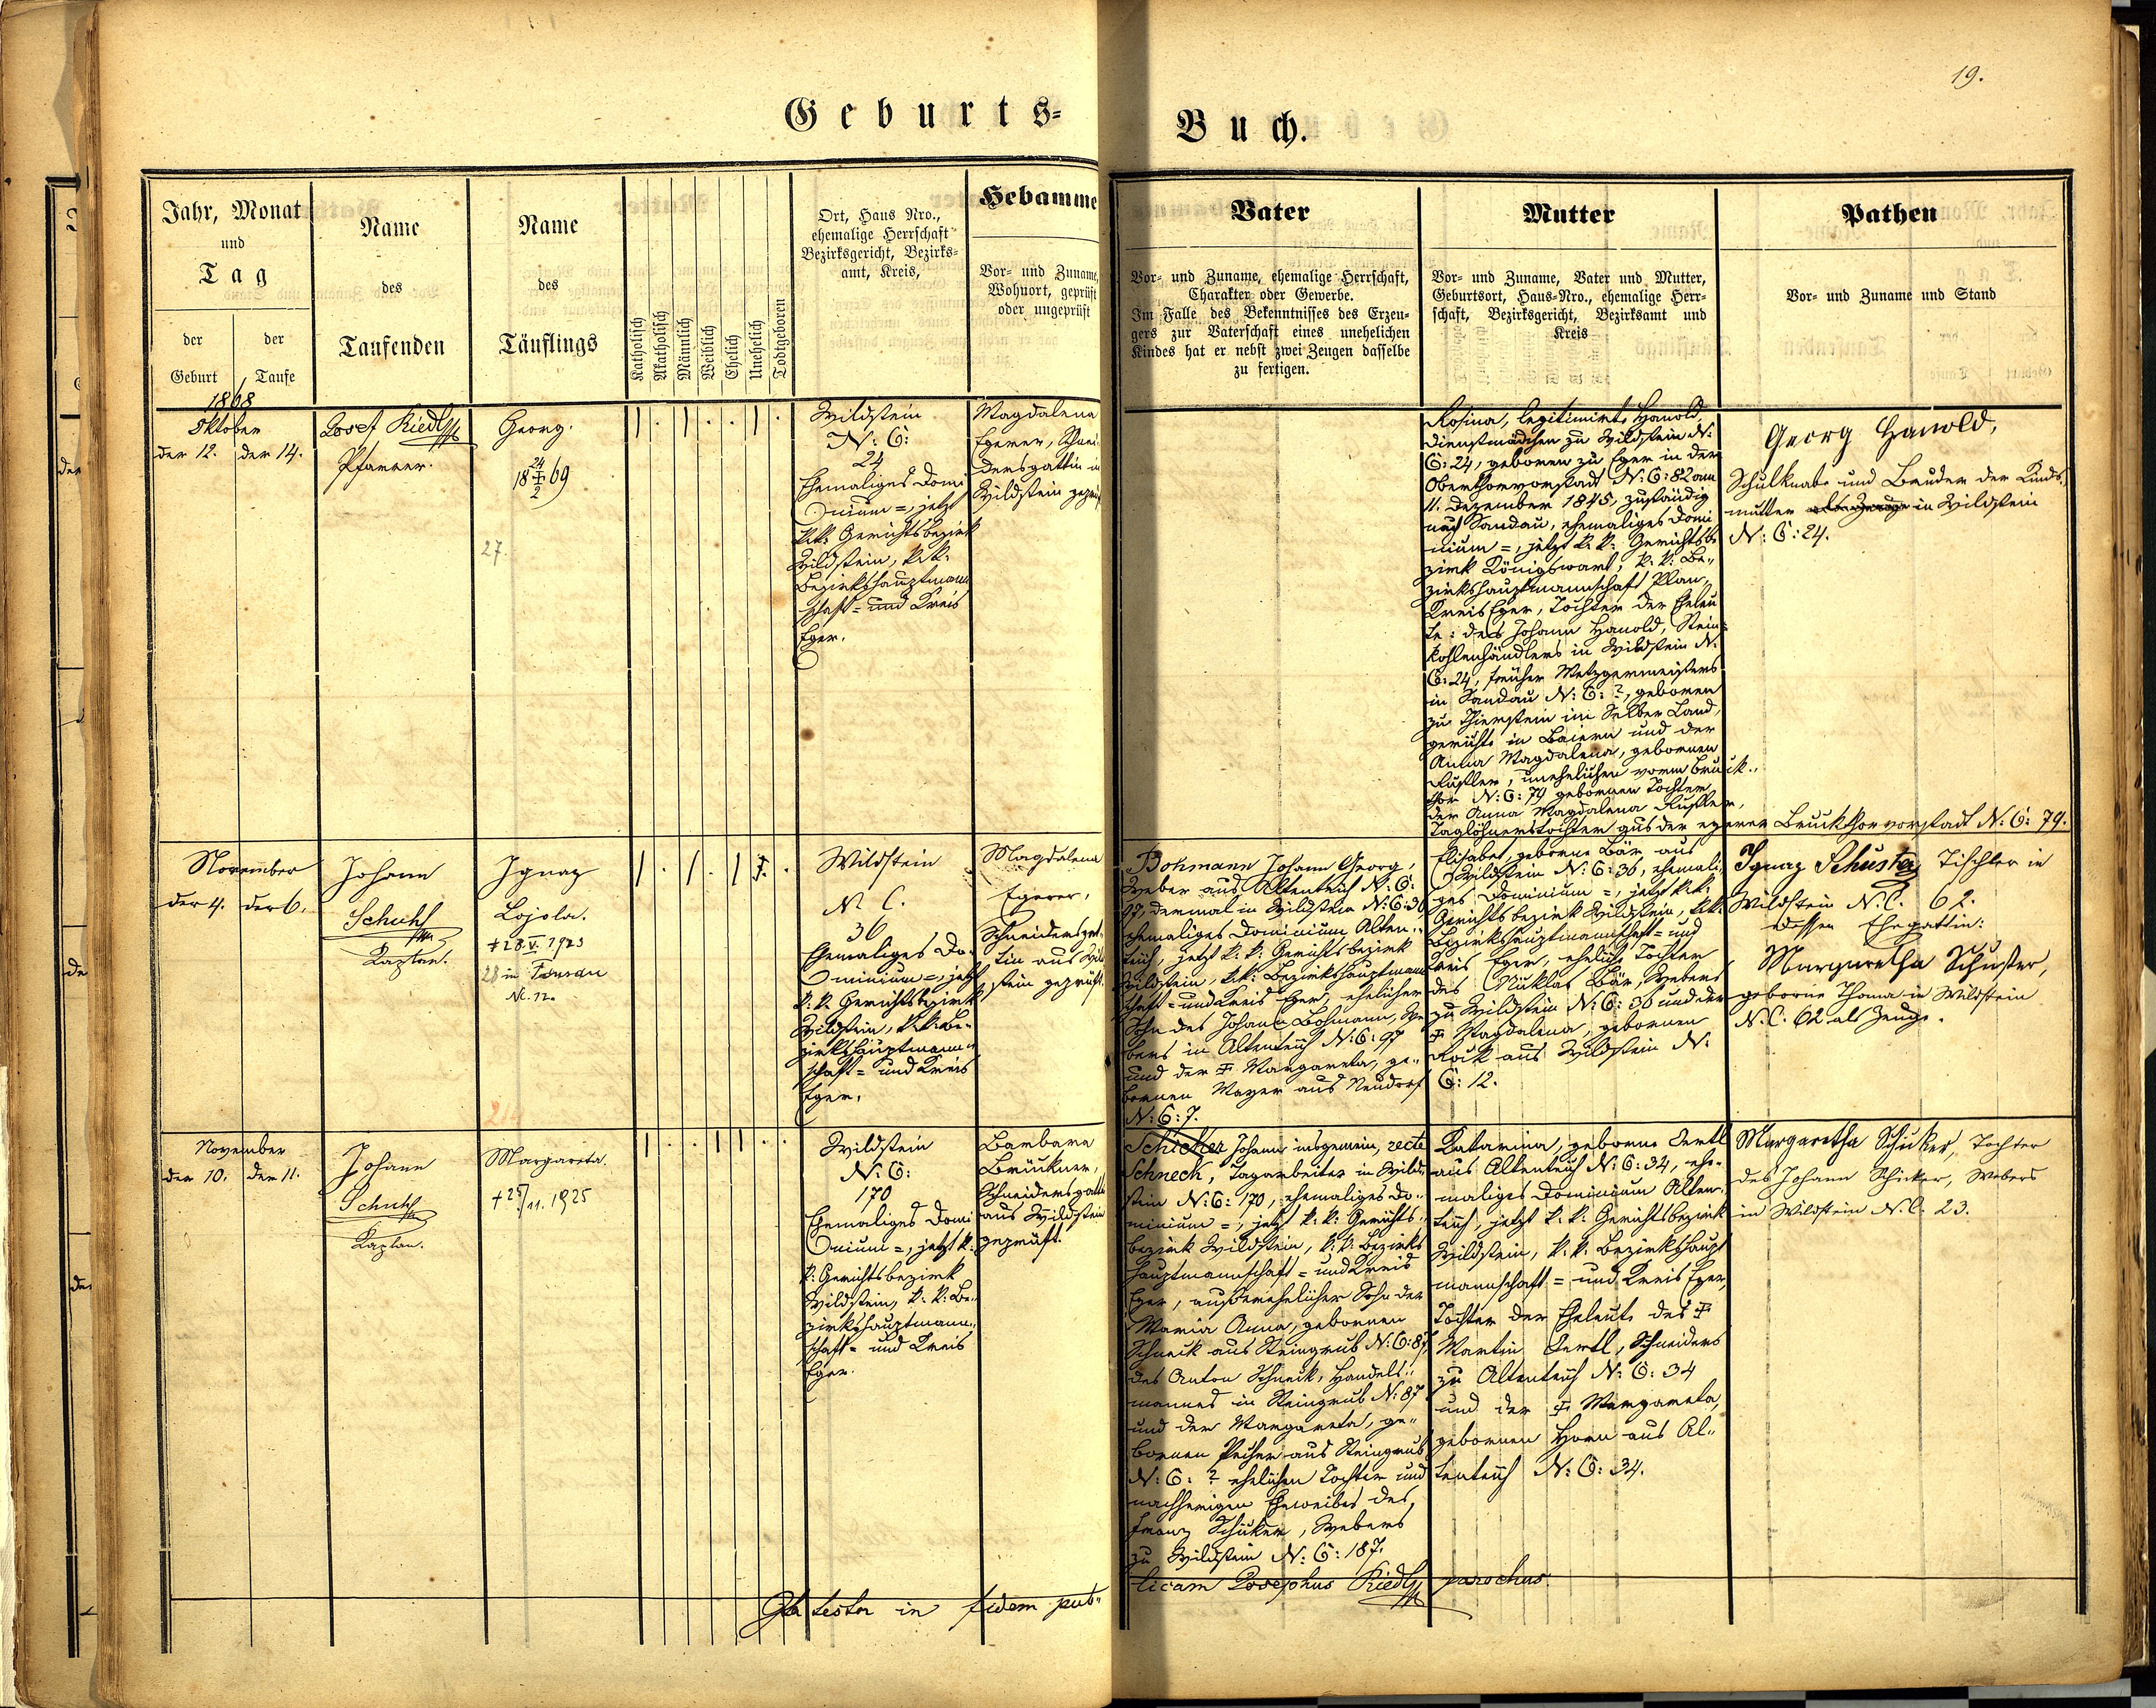 19.
Geburts-
Buch.
Jahr, Monat
und
Tag
der
Geburt
der
Taufe
Name
des
Taufenden
Name
des
Täuflings
Katholisch
Akatholisch
Männlich
Weiblich
Ehelich
Unehelich
Todtgeboren
Ort, Haus Nro.,
ehemalige Herrschaft
Bezirksgericht, Bezirks-
amt, Kreis,
Hebamme
Vor- und Zuname,
Wohnort, geprüft
oder ungeprüft
Vater
Vor- und Zuname, ehemalige Herrschaft,
Charakter oder Gewerbe.
Im Falle des Bekenntnisses des Erzeu-
gers zur Vaterschaft eines unehelichen
Kindes hat er nebst zwei Zeugen dasselbe
zu fertigen.
Mutter
Vor- und Zuname, Vater und Mutter,
Geburtsort, Haus-Nro., ehemalige Herr-
schaft, Bezirksgericht, Bezirksamt und
Kreis
Pathen
Vor- und Zuname und Stand
1868
Oktober
der 12. der 14.
Josef Riedl
Pfarrer.
Georg.
24/I 1869
2
27.
Wildstein
N: C:
24
Ehemaliges Domi
nium =, jetzt
k.k. Gerichtsbezirk
Wildstein, k.k.
Bezirkshauptmann
schaft = und Kreis
Eger.
Magdalena
Egerer, Schnei-
dersgattin in
Wildstein geprüft
Rosina, legitimirte Hanold,
Dienstmädchen zu Wildstein N:
C: 24, geboren zu Eger in der
Oberthorvorstadt N: C: 82 am
11. Dezember 1845, zuständig
nach Sandau, ehemaliges Domi
nium =, jetzt k. k. Gerichtsbe
zirk Königswart, k. k. Be-
zirkshauptmannschaft Plan,
Kreis Eger, Tochter der Eheleu
te: des Johann Hanold, Stein-
kohlenhändlers in Wildstein N:
C: 24, früher Metzgermeisters
in Sandau N: C: ?, geboren
zu Thierstein im Selber Land,
gerichte in Baiern und der
Anna Magdalena, gebornen
Rustler, unehelichen vorm Bruck-
thor N: C: 79 gebornen Tochter
der Anna Magdalena Rustler,
Taglöhnerstochter aus der egerer Bruckthorvorstadt N: C: 79.
Georg Hanold,
Schulknabe und Bruder der Kinds-
mutter in Wildstein
N: C: 24.
November
der 4. der 6.
Johann
Schuh
Kaplan.
Ignaz
Lojola.
+ 28. V. 1923
28 in
Nc. 12.
Wildstein
N. C.
36
Ehemaliges Do-
minium =, jetzt
k. k. Gerichtsbezirk
Wildstein, k. k. Be-
zirkshauptmann
schaft = und Kreis
Eger.
Magdalena
Egerer,
Schneidersgat-
tin aus Wild
stein geprüft.
Bohmann Johann Georg,
Weber aus Altenteich N: C:
97, dermal in Wildstein N: C: 36
ehemaliges Dominium Alten-
teich, jetzt k. k. Gerichtsbezirk
Wildstein, k.k. Bezirkshauptmann
schaft = und Kreis Eger, ehelicher
Sohn des Johann Bohmann, We
bers in Altenteich N: C: 97
und der + Margareta, ge-
bornen Mayer aus Neudorf
N: C: 7.
Elisabet, geborne Bär aus
Wildstein N: C: 36, ehemali-
ges Dominium =, jetzt k.k.
Gerichtsbezirk Wildstein, k.k.
Bezirkshauptmannschaft = und
Kreis Eger, eheliche Tochter
des Niklas Bär, Webers
zu Wildstein N: C: 36 und der
+ Magdalena, gebornen
aus Wildstein N:
C: 12.
Ignaz Schuster, Tischler in
Wildstein N. C. 62.
Dessen Ehegattin:
Margaretha Schuster,
geborne Thoma in Wildstein
N. C. 62 als Zeuge.
November
der 10. der 11.
Johann
Schuh
Kaplan.
Margareta.
+ 25/11. 1925
Wildstein
N: C:
170
Ehemaliges Domi
nium =, jetzt k.
k. Gerichtsbezirk
Wildstein, k. k. Be-
zirkshauptmann-
schaft = und Kreis
Eger.
Barbara
Brückner,
Schneidersgattin
aus Wildstein
geprüft.
Schicker Johann insgemein, recte
Schneck, Tagarbeiter in Wild-
stein N: C: 170, ehemaliges Do-
minium =, jetzt k. k. Gerichts-
bezirk Wildstein, k. k. Bezirks
hauptmannschaft = und Kreis
Eger, außerehelicher Sohn der
Maria Anna, gebornen
Schneck aus Steingrub N: C: 87,
des Anton Schneck, Handels-
mannes in Steingrub N: 87
und der Margareta, ge-
bornen aus Steingrub
N: C: ? ehelichen Tochter und
nachherigen Eheweibes des
Franz Schicker, Webers
zu Wildstein N: C: 187.
Katarina, geborne Oertl
aus Altenteich N: C: 34, ehe-
maliges Dominium Alten-
teich, jetzt k. k. Gerichtsbezirk
Wildstein, k. k. Bezirkshaupt
mannschaft = und Kreis Eger,
Tochter der Eheleute des +
Martin Oertl, Schneiders
zu Altenteich N: C: 34
und der + Margareta,
gebornen Horn aus Al-
tenteich N: C: 34.
Margaretha Schicker, Tochter
des Johann Schicker, Webers
in Wildstein N. C. 23.
Ita testor in fidem pub-
licam Josephus Riedl parochus.